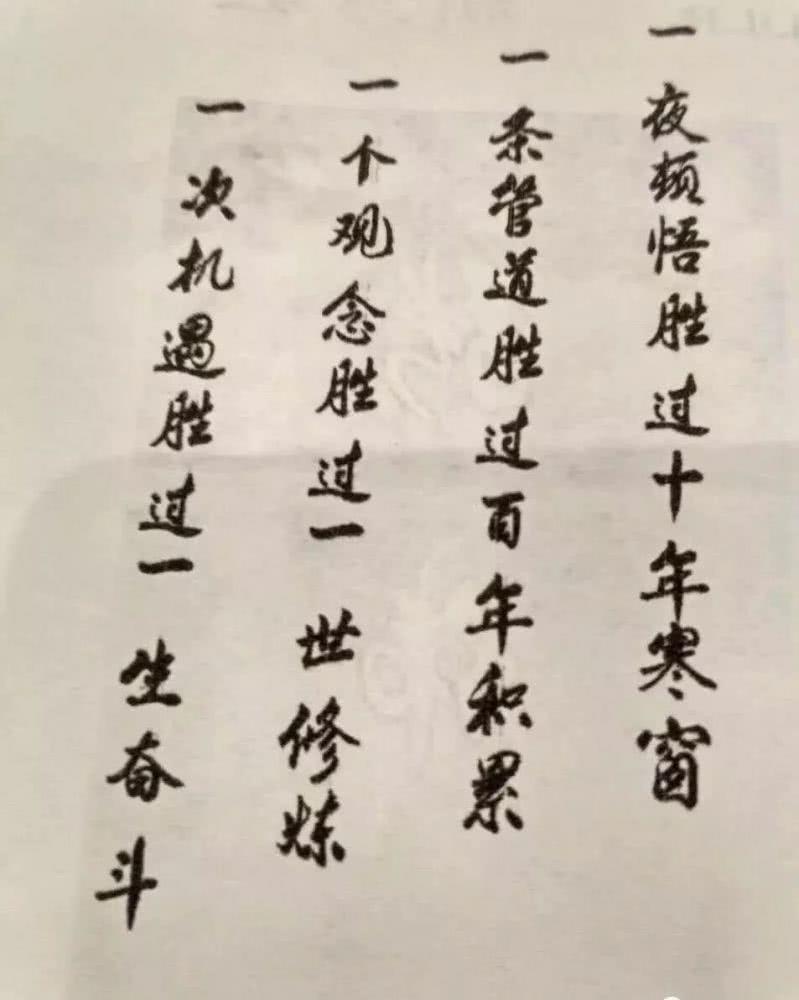 一夜顿悟胜过十年寒窗
一条管道胜过百年积累
一个观念胜过一世修炼
一次机遇胜过一生奋斗